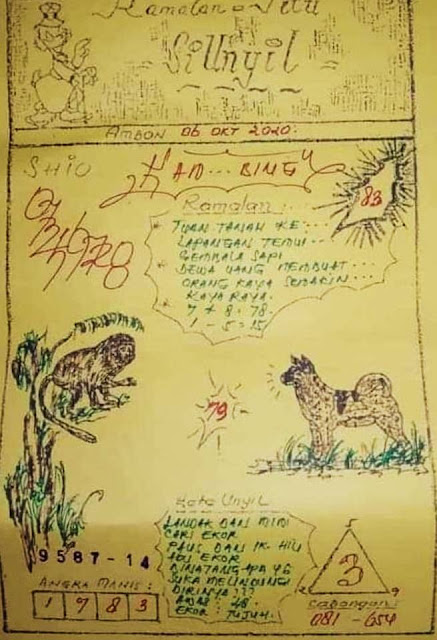 Ramalan - Jitu
Si Unyil
AMBON 06 OKT 2020.
SHIO
KAM... BING"
83
Ramalan:
* TUAN TANAH KE...
LAPANGAN TEMUI...
GEMBALA SAPI
* DEWA UANG MEMBUAT...
ORANG KAYA SEMAKIN...
KAYA RAYA.
* 7 + 8 = 78.
1 - 5 = 15
79
Kata Unyil
LANDAK DAN MIMI
CARI EKOR
PAUS DAN IK. HIU
ADU EKOR
BINATANG APA YG
SUKA MELINDUNGI
DIRINYA???
EKOR TUJUH.
9587-14
ANGKA MANIS:
1 9 8 3
3
2 9
Cabangan:
081 - 654